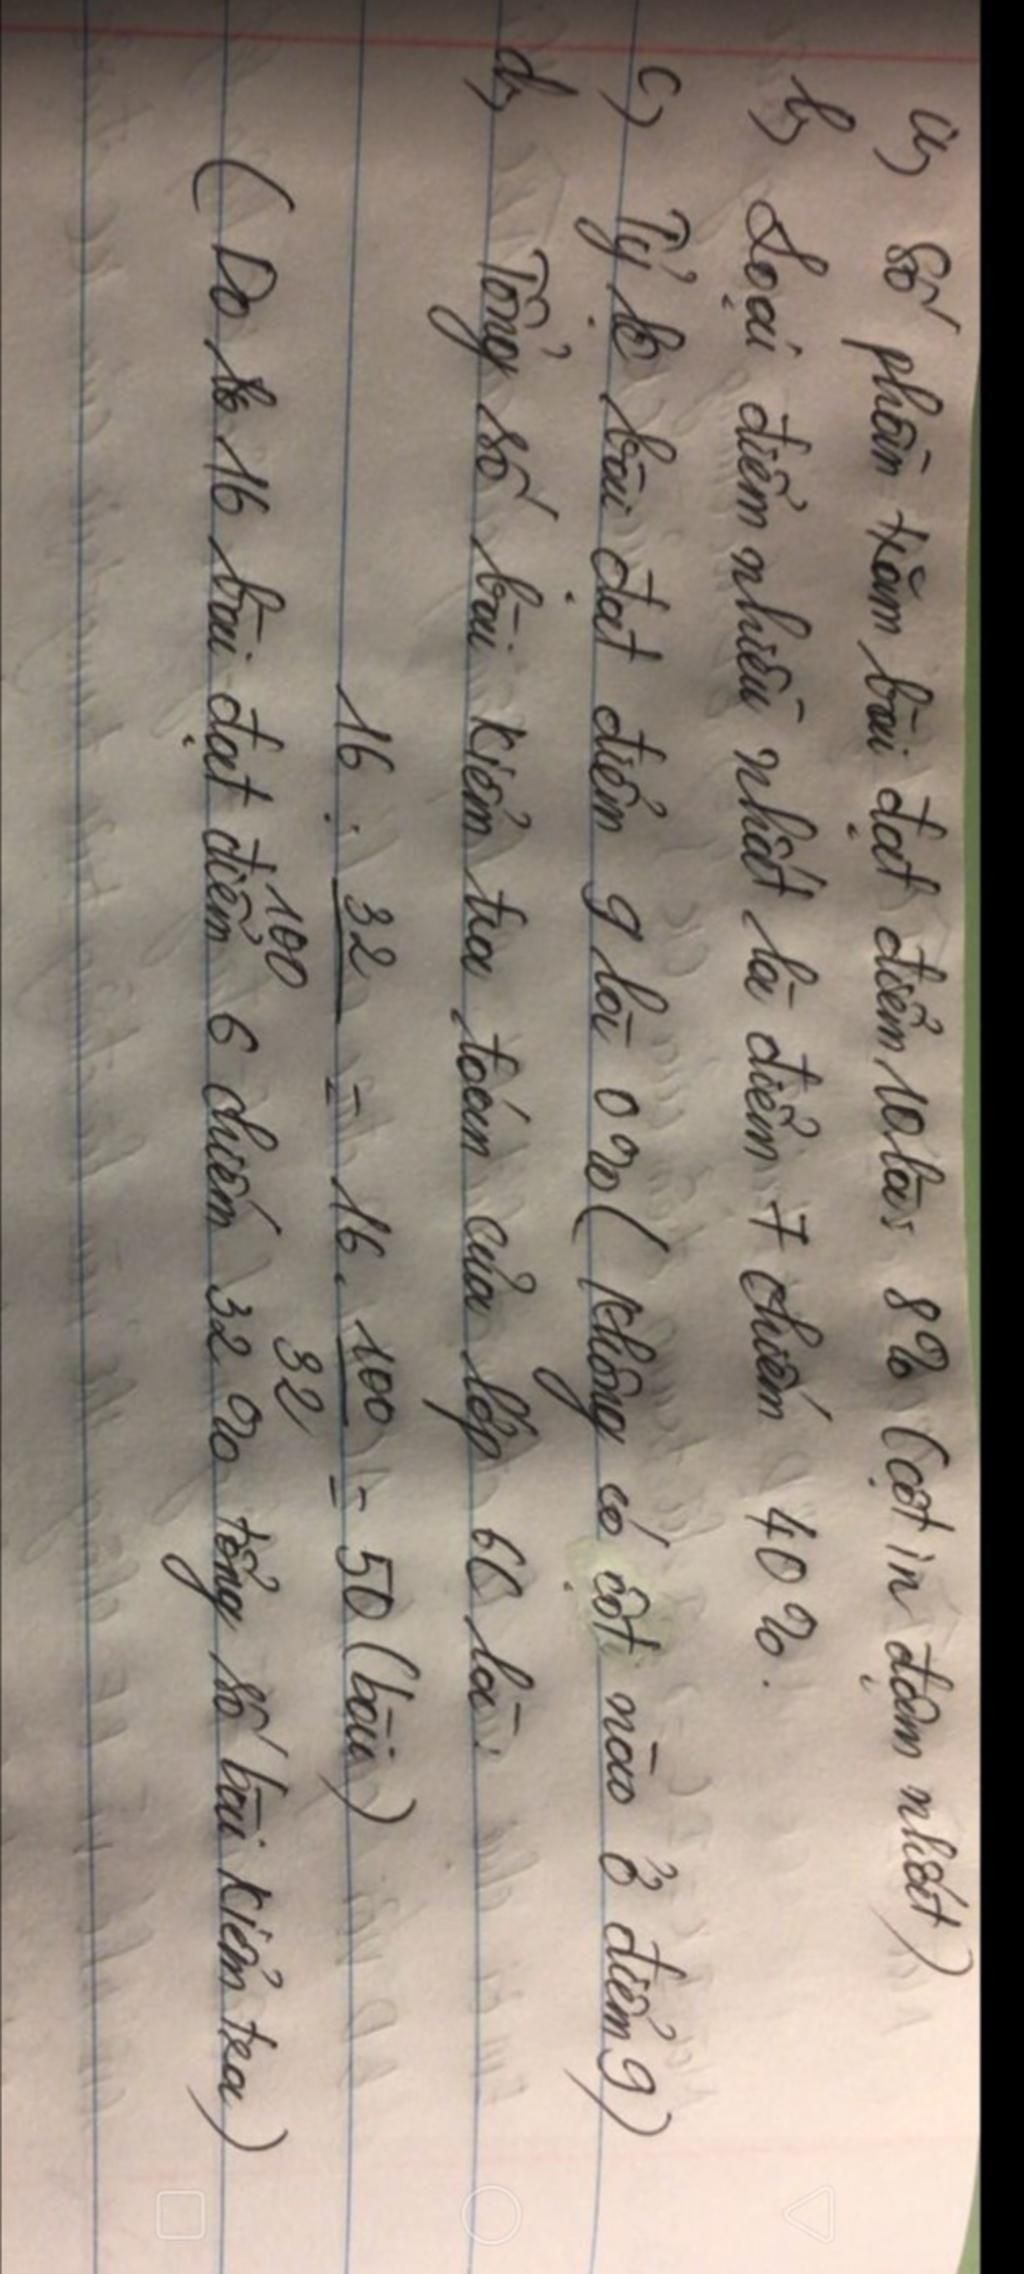 a, Số phần trăm bài đạt điểm 10 là: 8% (cột in đậm nhất)
b, Loại điểm nhiều nhất là điểm 7 chiếm 40%.
c, Tỷ lệ bài đạt điểm 9 là 0% (không có cột nào ở điểm 9)
d, Tổng số bài kiểm tra toán của lớp 6C là:
16 : 32/100 = 16 . 100/32 = 50 (bài)
(Do 16 bài đạt điểm 6 chiếm 32% tổng số bài kiểm tra)